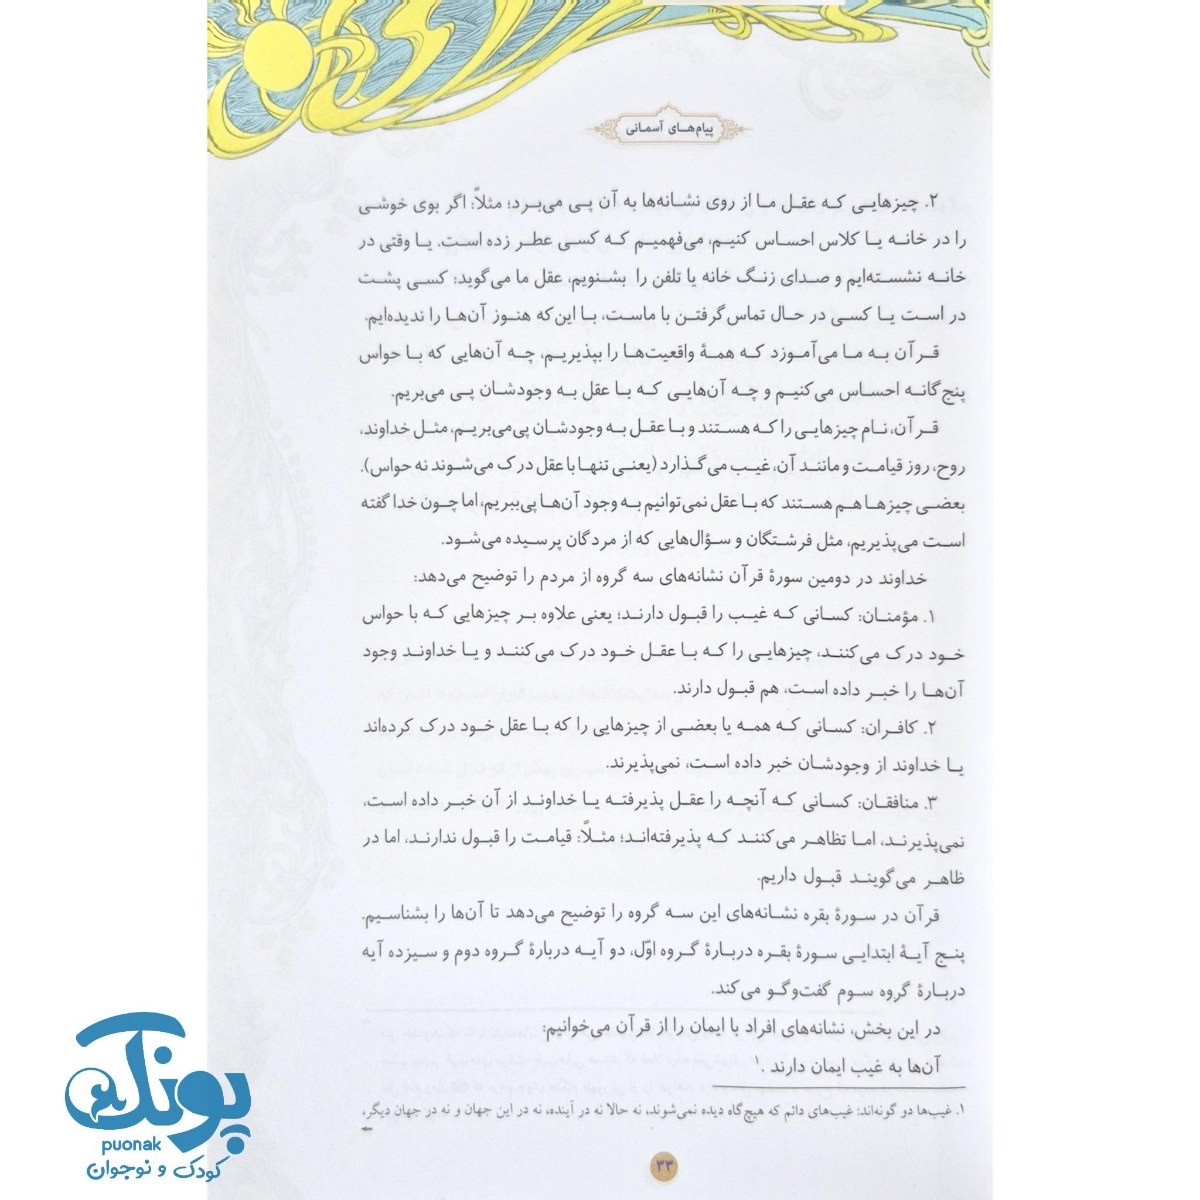 پیام‌های آسمانی
۲. چیزهایی که عقل ما از روی نشانه‌ها به آن پی می‌برد؛ مثلاً: اگر بوی خوشی
را در خانه یا کلاس احساس کنیم، می‌فهمیم که کسی عطر زده است. یا وقتی در
خانه نشسته‌ایم و صدای زنگ خانه یا تلفن را بشنویم، عقل ما می‌گوید: کسی پشت
در است یا کسی در حال تماس گرفتن با ماست، با این‌که هنوز آن‌ها را ندیده‌ایم.
قرآن به ما می‌آموزد که همهٔ واقعیت‌ها را بپذیریم، چه آن‌هایی که با حواس
پنج‌گانه احساس می‌کنیم و چه آن‌هایی که با عقل به وجودشان پی می‌بریم.
قرآن، نام چیزهایی را که هستند و با عقل به وجودشان پی‌می‌بریم، مثل خداوند،
روح، روز قیامت و مانند آن، غیب می‌گذارد (یعنی تنها با عقل درک می‌شوند نه حواس).
بعضی چیزها هم هستند که با عقل نمی‌توانیم به وجود آن‌ها پی‌ببریم، اما چون خدا گفته
است می‌پذیریم، مثل فرشتگان و سؤال‌هایی که از مردگان پرسیده می‌شود.
خداوند در دومین سورهٔ قرآن نشانه‌های سه گروه از مردم را توضیح می‌دهد:
۱. مؤمنان: کسانی که غیب را قبول دارند؛ یعنی علاوه بر چیزهایی که با حواس
خود درک می‌کنند، چیزهایی را که با عقل خود درک می‌کنند و یا خداوند وجود
آن‌ها را خبر داده است، هم قبول دارند.
۲. کافران: کسانی که همه یا بعضی از چیزهایی را که با عقل خود درک کرده‌اند
یا خداوند از وجودشان خبر داده است، نمی‌پذیرند.
۳. منافقان: کسانی که آنچه را عقل پذیرفته یا خداوند از آن خبر داده است،
نمی‌پذیرند، اما تظاهر می‌کنند که پذیرفته‌اند؛ مثلاً: قیامت را قبول ندارند، اما در
ظاهر می‌گویند قبول داریم.
قرآن در سورهٔ بقره نشانه‌های این سه گروه را توضیح می‌دهد تا آن‌ها را بشناسیم.
پنج آیهٔ ابتدایی سورهٔ بقره دربارهٔ گروه اوّل، دو آیه دربارهٔ گروه دوم و سیزده آیه
دربارهٔ گروه سوم گفت‌وگو می‌کند.
در این بخش، نشانه‌های افراد با ایمان را از قرآن می‌خوانیم:
آن‌ها به غیب ایمان دارند.۱
۱. غیب‌ها دو گونه‌اند: غیب‌های دائم که هیچ‌گاه دیده نمی‌شوند، نه حالا نه در آینده، نه در این جهان و نه در جهان دیگر،
۳۳
پونک
puonak
کودک و نوجوان